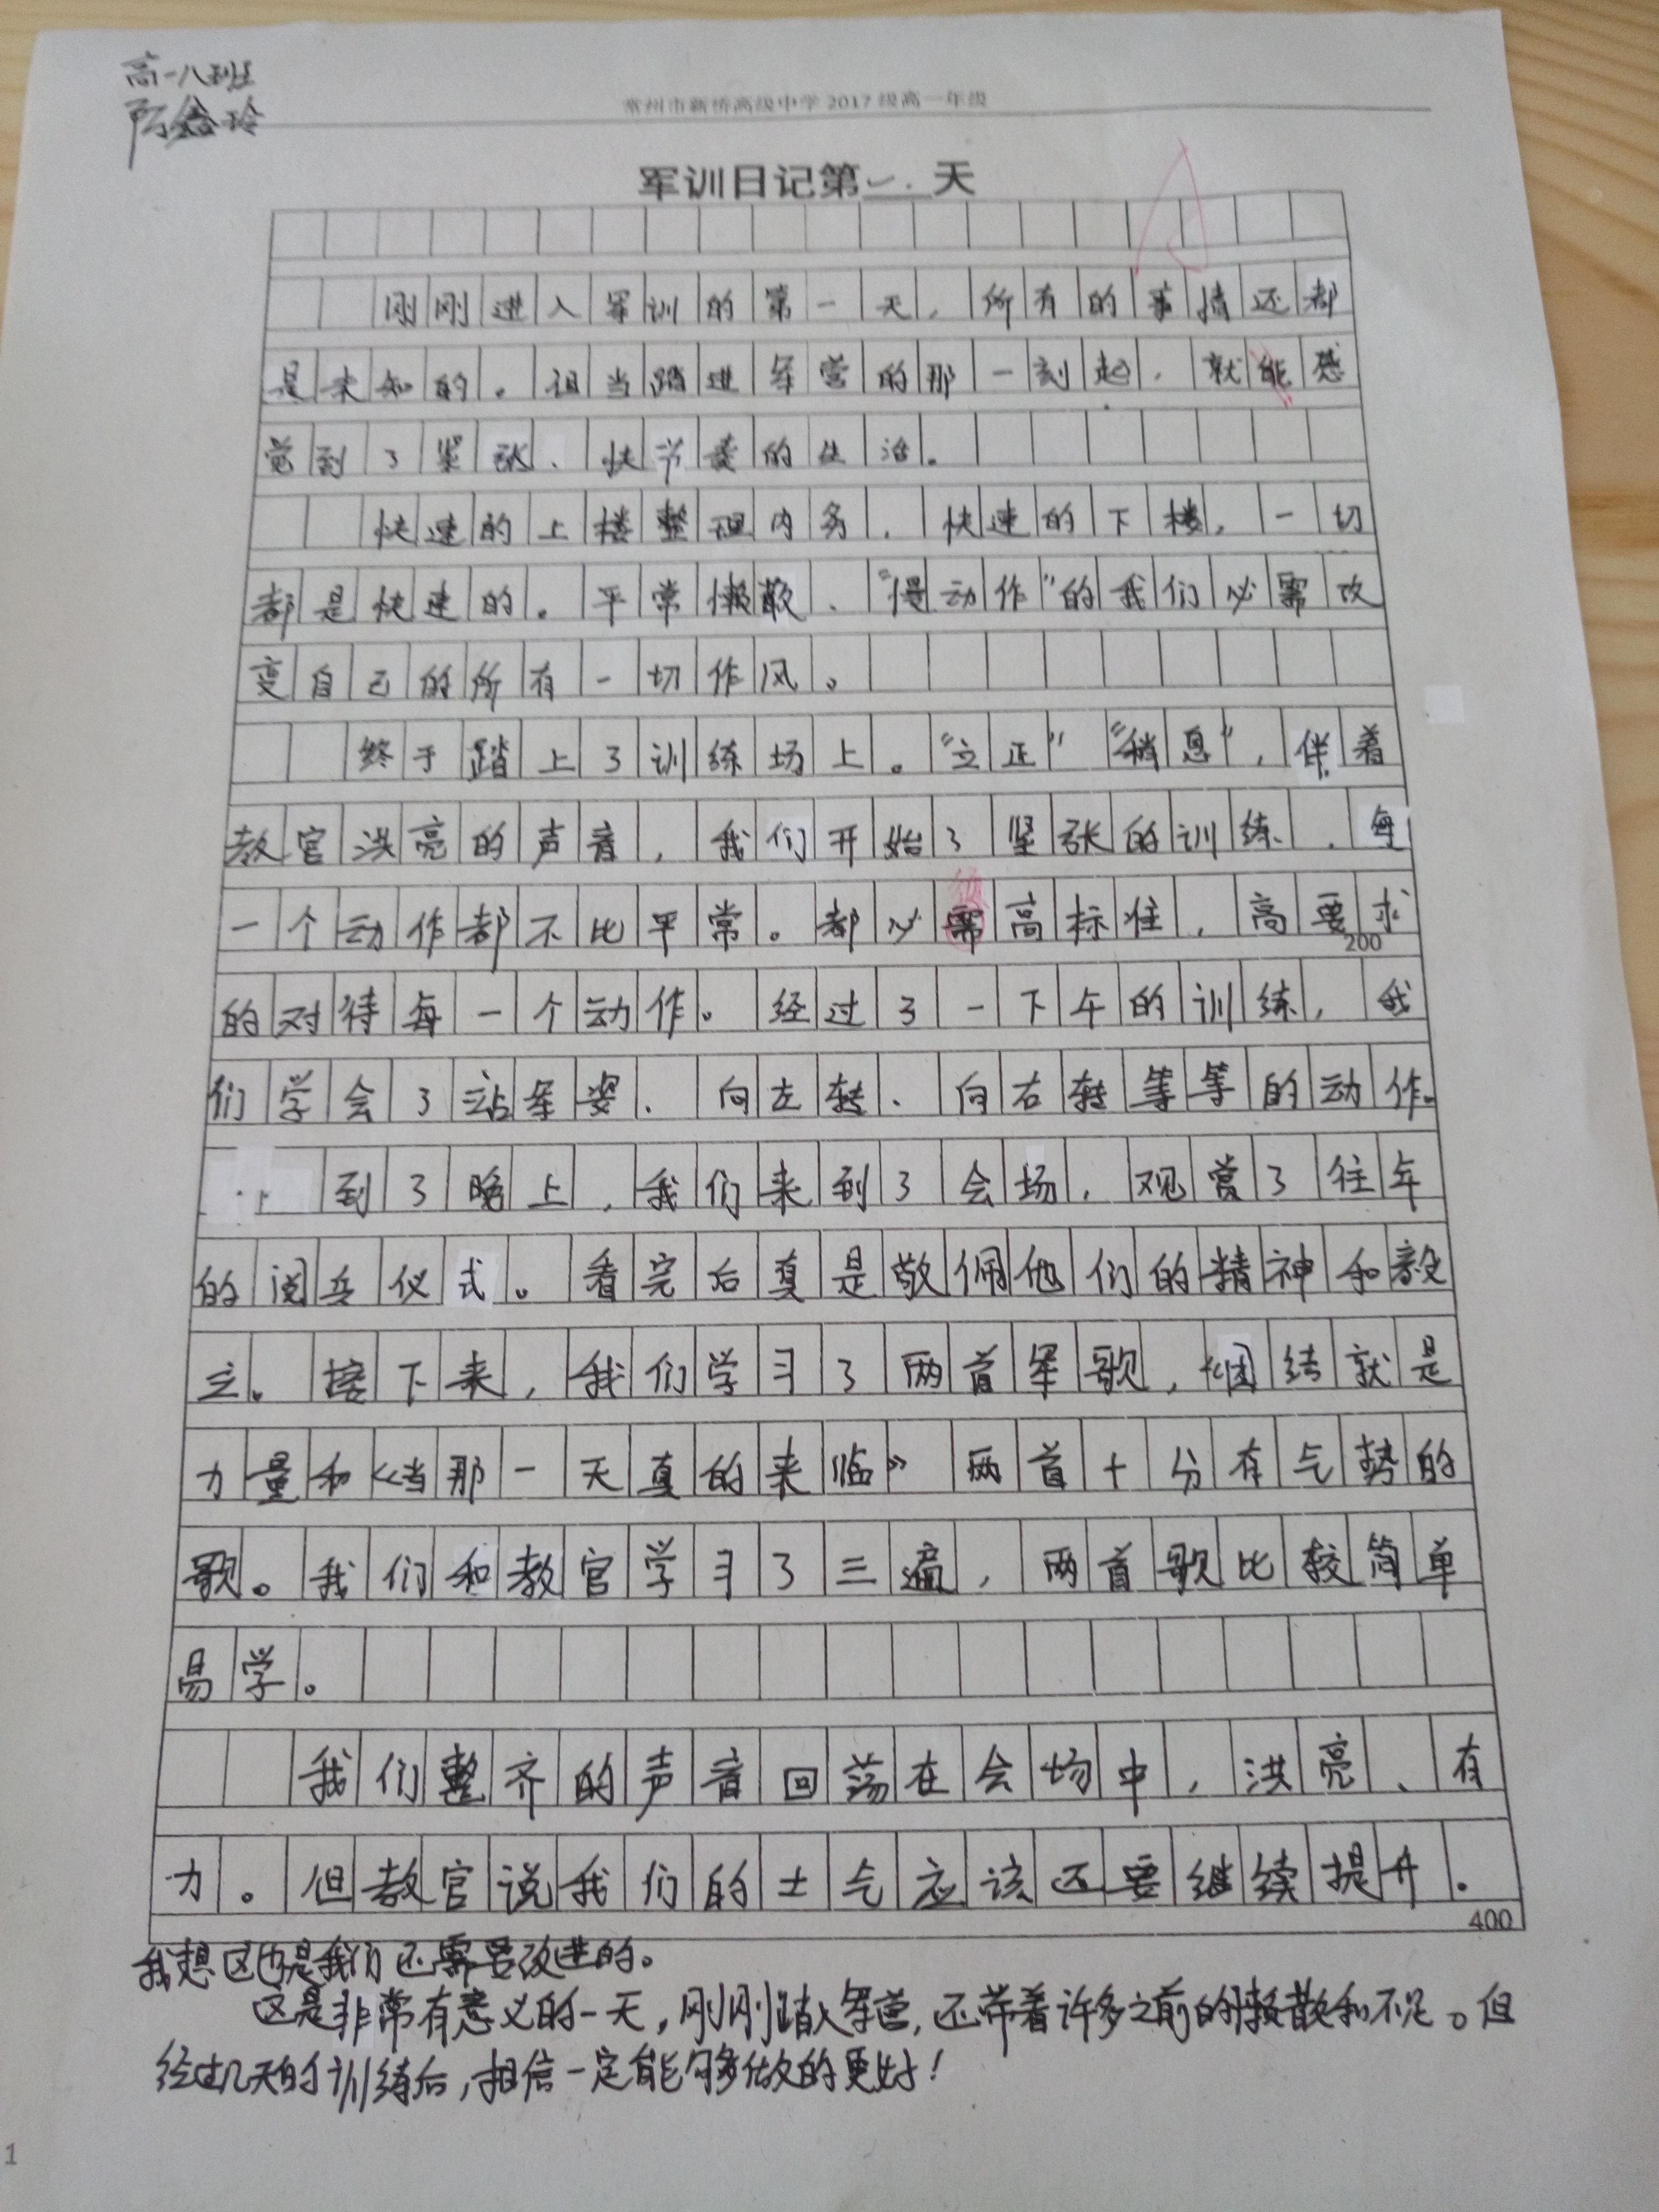 高一八班
陈鑫玲
常州市新桥高级中学2017级高一年级
军训日记第一天
刚刚进入军训的第一天，所有的事情还都
是未知的。但当踏进军营的那一刻起，就能感
觉到了紧张、快节奏的生活。
快速的上楼整理内务，快速的下楼，一切
都是快速的。平常懒散、“慢动作”的我们必需改
变自己的所有一切作风。
终于踏上了训练场上。“立正”“稍息”，伴着
教官洪亮的声音，我们开始了紧张的训练．每
须
一个动作都不比平常。都必需高标准，高要求
200
的对待每一个动作。经过了一下午的训练，我
们学会了站军姿、向左转、向右转等等的动作。
到了晚上，我们来到了会场，观赏了往年
的阅兵仪式。看完后真是敬佩他们的精神和毅
立。接下来，我们学习了两首军歌，《团结就是
力量和《当那一天真的来临》两首十分有气势的
歌。我们和教官学习了三遍，两首歌比较简单
易学。
我们整齐的声音回荡在会场中，洪亮、有
力。但教官说我们的士气应该还要继续提升。
400
我想这也是我们还需要改进的。
这是非常有意义的一天，刚刚踏入军营，还带着许多之前的懒散和不足。但
经过几天的训练后，相信一定能够做的更好！
1